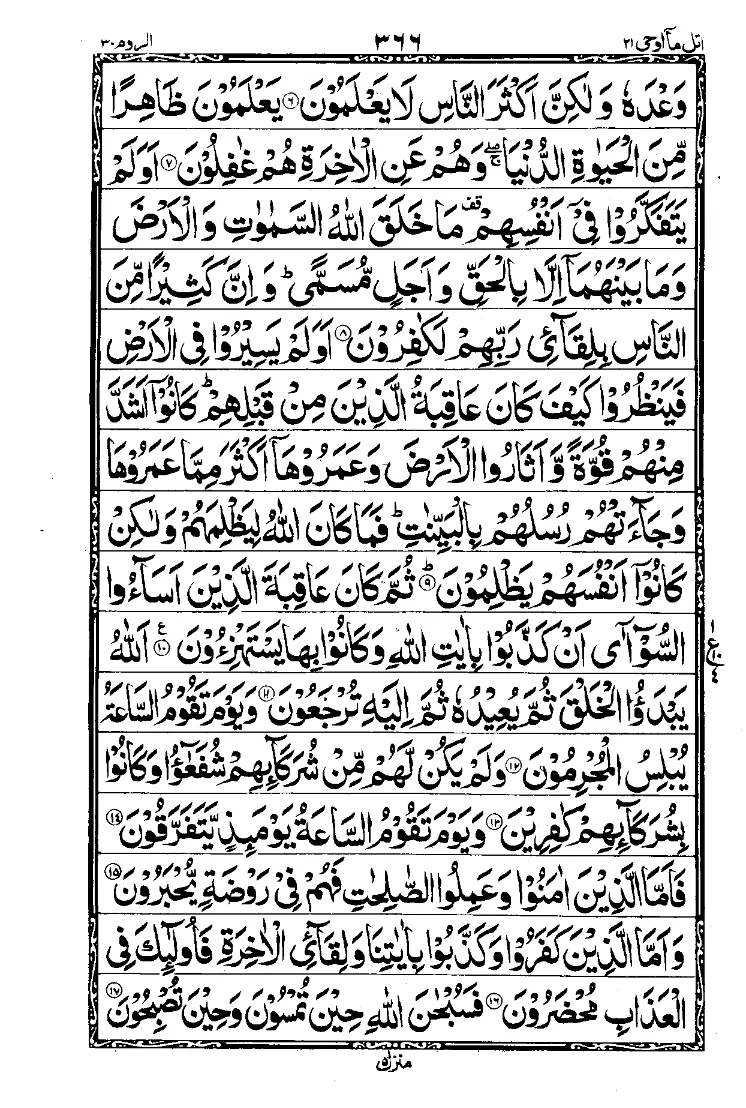 اتل مآ اوحی ۲۱ ۳۶۶ الروم ۳۰
وَعْدَهٗ وَلٰكِنَّ اَكْثَرَ النَّاسِ لَا يَعْلَمُوْنَ ۶ يَعْلَمُوْنَ ظَاهِرًا
مِّنَ الْحَيٰوةِ الدُّنْيَا ۖۚ وَهُمْ عَنِ الْاٰخِرَةِ هُمْ غٰفِلُوْنَ ۷ اَوَلَمْ
يَتَفَكَّرُوْا فِىْٓ اَنْفُسِهِمْ قف مَا خَلَقَ اللّٰهُ السَّمٰوٰتِ وَالْاَرْضَ
وَمَا بَيْنَهُمَآ اِلَّا بِالْحَقِّ وَاَجَلٍ مُّسَمًّى ؕ وَاِنَّ كَثِيْرًا مِّنَ
النَّاسِ بِلِقَآئِ رَبِّهِمْ لَكٰفِرُوْنَ ۸ اَوَلَمْ يَسِيْرُوْا فِى الْاَرْضِ
فَيَنْظُرُوْا كَيْفَ كَانَ عَاقِبَةُ الَّذِيْنَ مِنْ قَبْلِهِمْ ؕ كَانُوْٓا اَشَدَّ
مِنْهُمْ قُوَّةً وَّاَثَارُوا الْاَرْضَ وَعَمَرُوْهَآ اَكْثَرَ مِمَّا عَمَرُوْهَا
وَجَآءَتْهُمْ رُسُلُهُمْ بِالْبَيِّنٰتِ ؕ فَمَا كَانَ اللّٰهُ لِيَظْلِمَهُمْ وَلٰكِنْ
كَانُوْٓا اَنْفُسَهُمْ يَظْلِمُوْنَ ؕ ۹ ثُمَّ كَانَ عَاقِبَةَ الَّذِيْنَ اَسَآءُوا
السُّوْٓاٰى اَنْ كَذَّبُوْا بِاٰيٰتِ اللّٰهِ وَكَانُوْا بِهَا يَسْتَهْزِءُوْنَ ۱۰ ع اَللّٰهُ
يَبْدَؤُا الْخَلْقَ ثُمَّ يُعِيْدُهٗ ثُمَّ اِلَيْهِ تُرْجَعُوْنَ ۱۱ وَيَوْمَ تَقُوْمُ السَّاعَةُ
يُبْلِسُ الْمُجْرِمُوْنَ ۱۲ وَلَمْ يَكُنْ لَّهُمْ مِّنْ شُرَكَآئِهِمْ شُفَعٰٓؤُا وَكَانُوْا
بِشُرَكَآئِهِمْ كٰفِرِيْنَ ۱۳ وَيَوْمَ تَقُوْمُ السَّاعَةُ يَوْمَئِذٍ يَّتَفَرَّقُوْنَ ۱۴
فَاَمَّا الَّذِيْنَ اٰمَنُوْا وَعَمِلُوا الصّٰلِحٰتِ فَهُمْ فِىْ رَوْضَةٍ يُّحْبَرُوْنَ ۱۵
وَاَمَّا الَّذِيْنَ كَفَرُوْا وَكَذَّبُوْا بِاٰيٰتِنَا وَلِقَآئِ الْاٰخِرَةِ فَاُولٰٓئِكَ فِى
الْعَذَابِ مُحْضَرُوْنَ ۱۶ فَسُبْحٰنَ اللّٰهِ حِيْنَ تُمْسُوْنَ وَحِيْنَ تُصْبِحُوْنَ ۱۷
منزل ۵